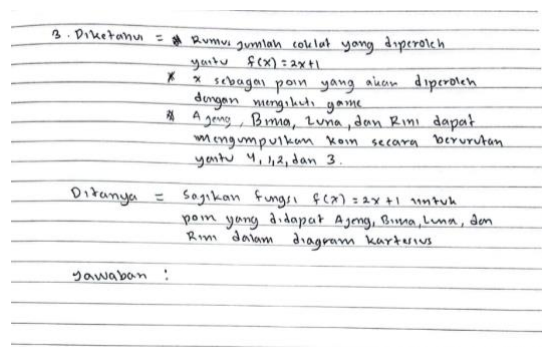 3. Diketahui = * Rumus jumlah coklat yang diperoleh
yaitu f(x) = 2x+1
* x sebagai poin yang akan diperoleh
dengan mengikuti game
* Ajeng, Bima, Luna, dan Rini dapat
mengumpulkan koin secara berurutan
yaitu 4, 1, 2, dan 3.
Ditanya = Sajikan fungsi f(x) = 2x+1 untuk
poin yang didapat Ajeng, Bima, Luna, dan
Rini dalam diagram kartesius
Jawaban :